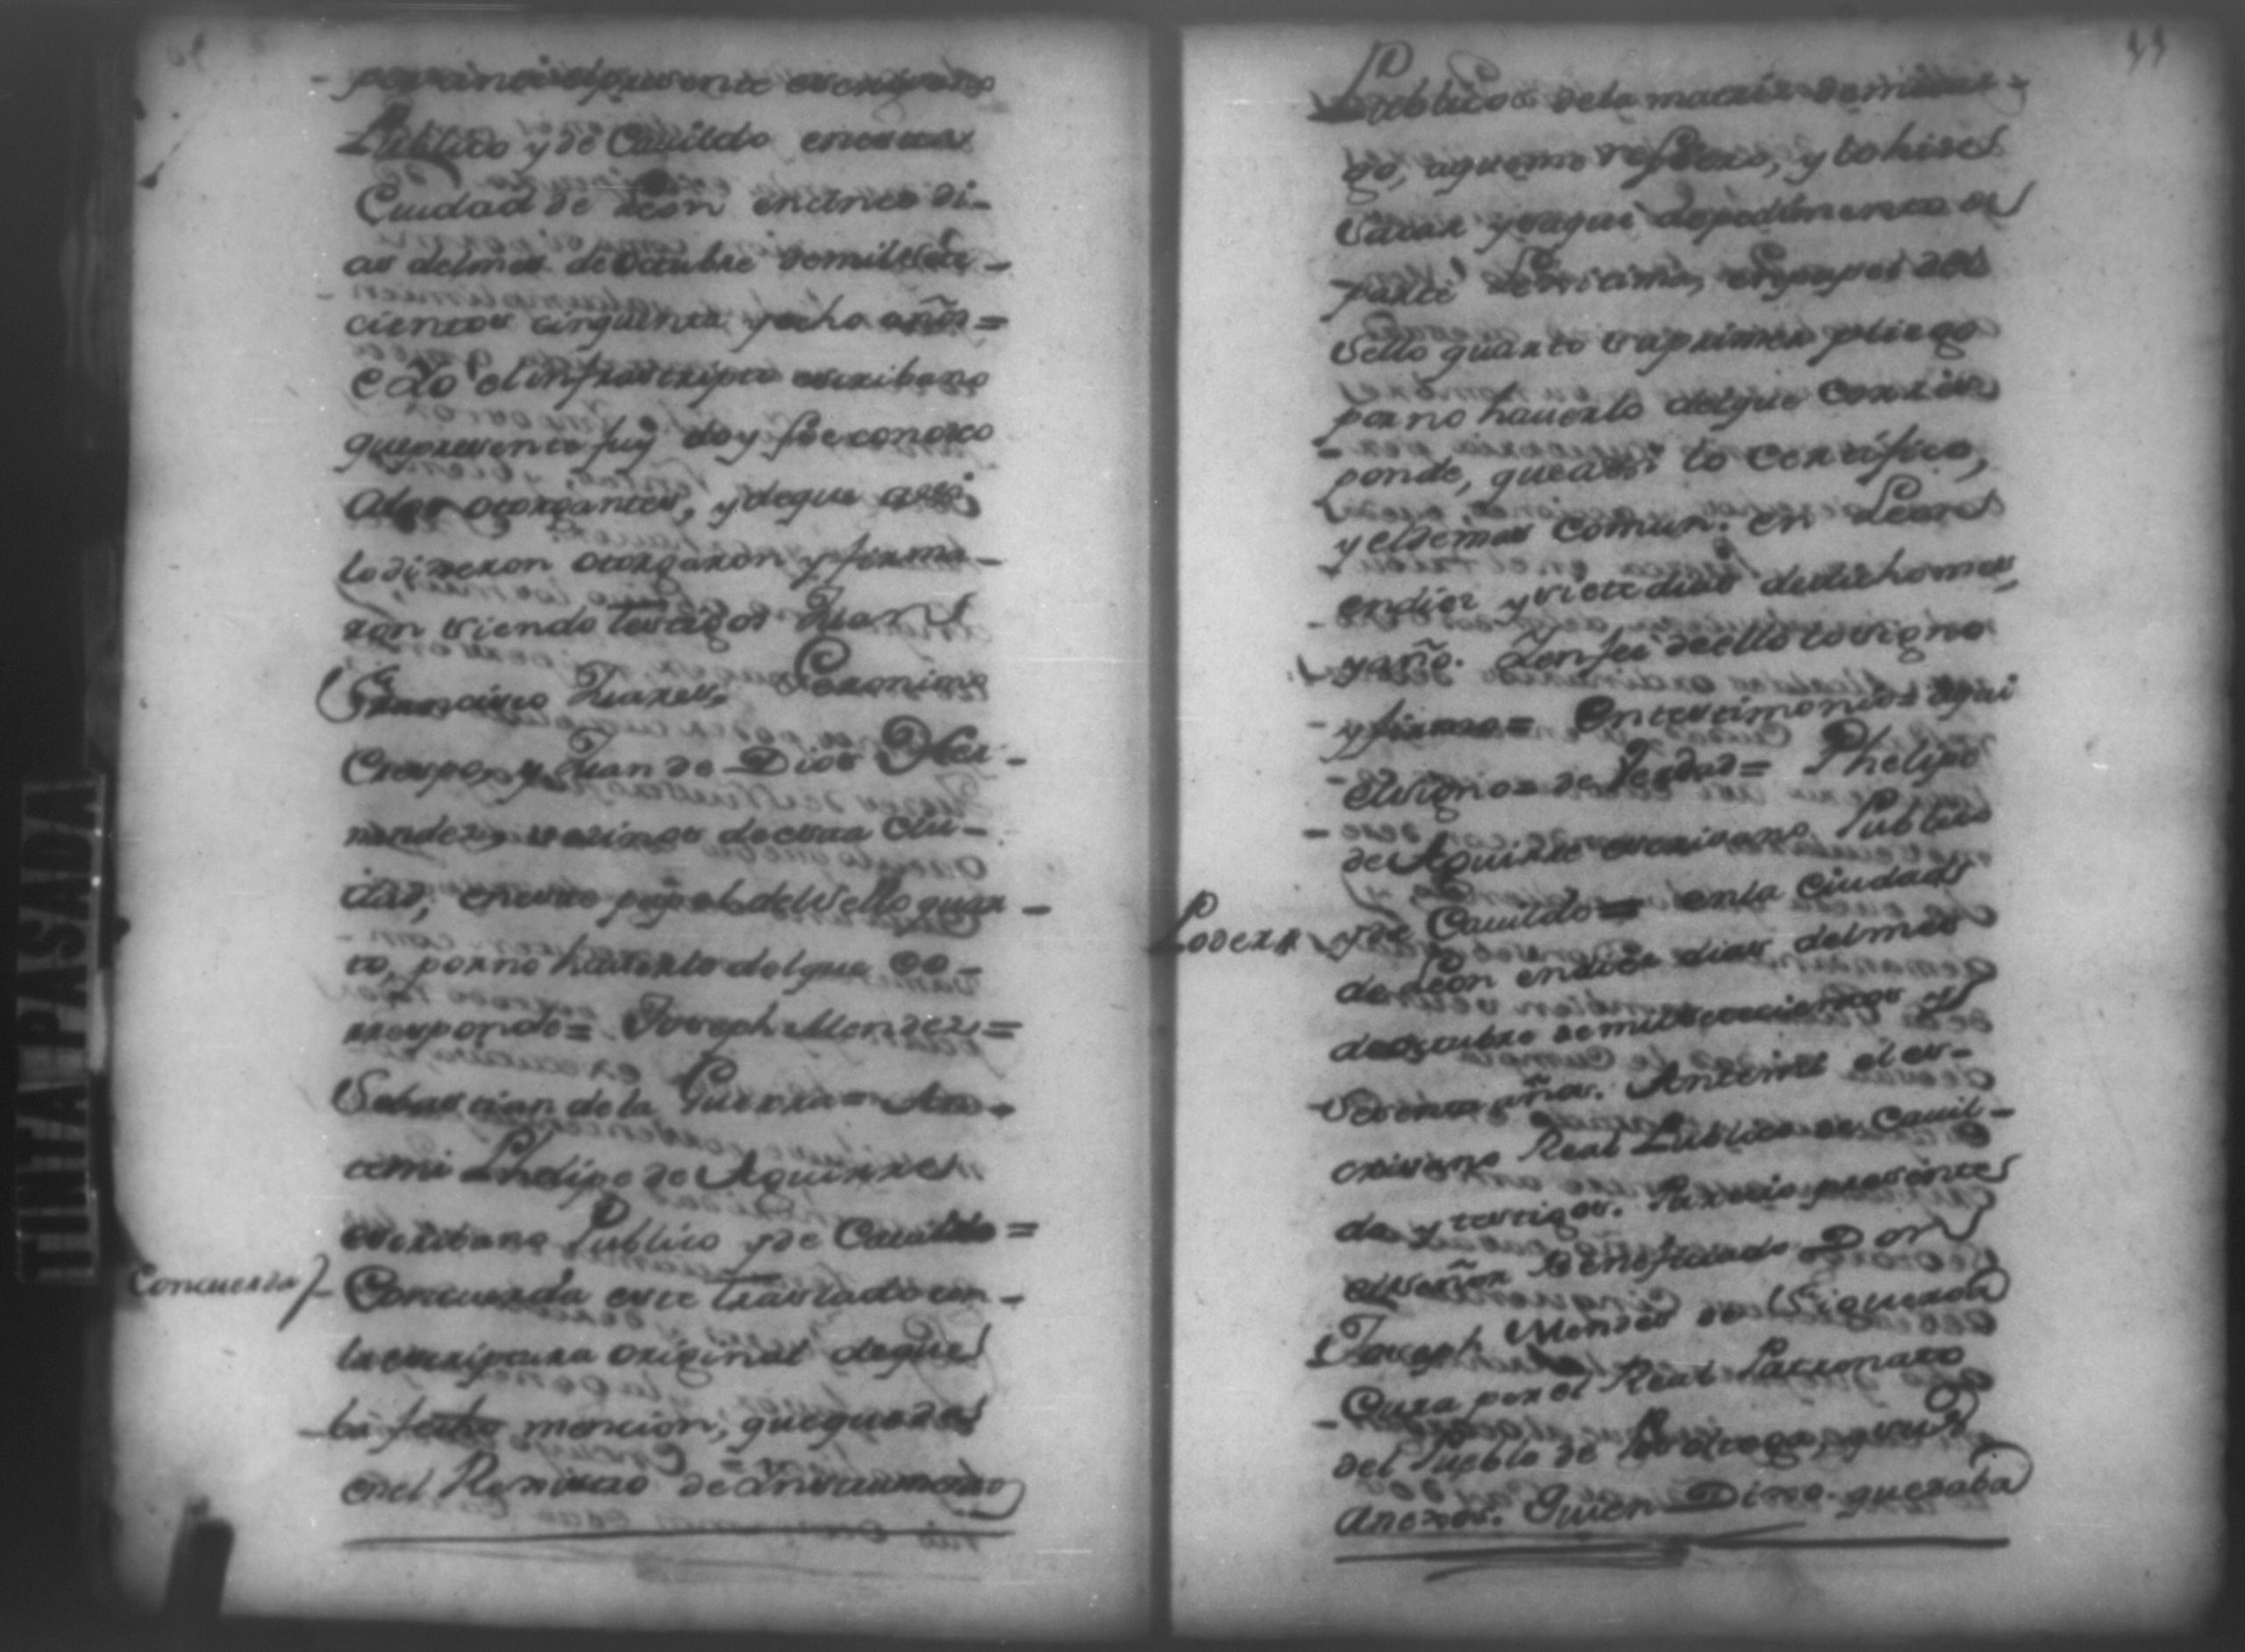 por ante el presente escribano
Publico y de Cavildo en esta
Ciudad de Leon en cinco di-
as del mes de Octubre de mil sete-
cientos cinquenta y ocho años =
e Yo el infrascripto escribano
que presente fuy doy fee conosco
a los otorgantes, y de que assi
lo dixeron otorgaron y firma-
ron siendo testigos Juan
Francisco Juares, Geronimo
Crespo, y Juan de Dios Her-
nandez, vezinos de esta Ciu-
dad, en este papel del sello quar-
to, por no haverlo del que co-
rresponde = Joseph Mendez =
Sebastian de la Guerra = An-
te mi Phelipe de Aguirre
escribano Publico y de Cavildo =
Concuerda
Concuerda este traslado con
la escriptura original de que
ba fecho mencion, que queda
en el Rexistro de Instrumentos
Publicos de la
go, a que me refiero, y lo hise
sacar y saque de pedimento de
parte en papel del
sello quarto su primer pliego
por no haverlo del que corres-
ponde, que assi lo certifico,
y el demas comun. en Leon
en dies y siete dias de dicho mes,
y año. Y en fee de ello lo signo
y firmo = En testimonio = aqui
el signo = de Verdad = Phelipe
de Aguirre escrivano Publico
y de Cavildo = en la Ciudad
Poder
de Leon en dies dias del mes
de Octubre de mil setecientos y
sesenta años. Ante mi el es-
crivano Real Publico de Cavil-
do y testigos. Parecio presente
el señor Beneficiado Don
Joseph Mendes de Figueroa
Cura por el Real Patronato
del Pueblo de Posoltega, y sus
anexos. Quien Dixo. que daba